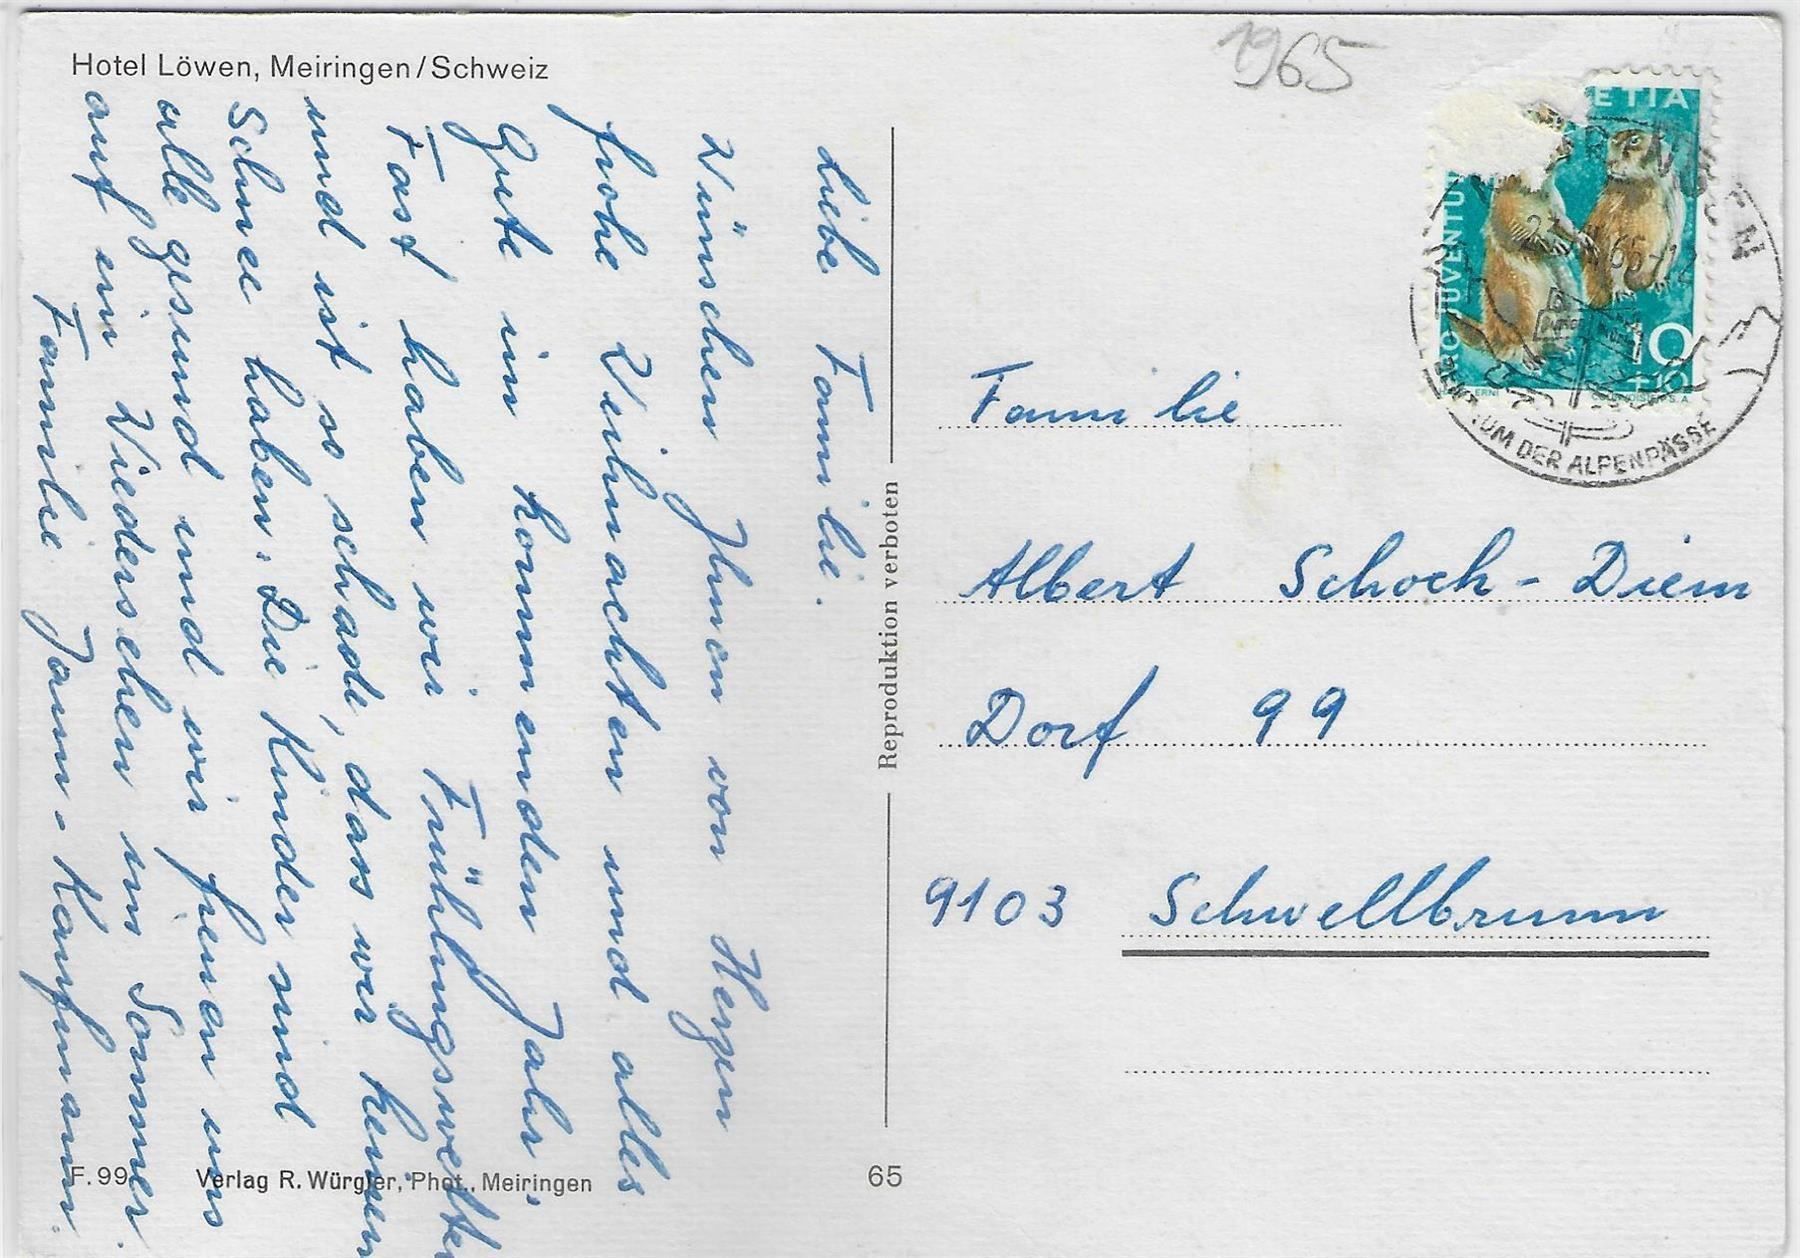 Hotel Löwen, Meiringen/Schweiz
1965
Liebe Familie.
Wünschen Ihnen von Herzen
frohe Weihnachten und alles
Gute im kommenden Jahr.
Fast haben wir Frühlingswetter
und ist so schade, dass wir keinen
Schnee haben. Die Kinder sind
alle gesund und wir freuen uns
auf ein Wiedersehen im Sommer.
Familie Jaun-Kaufmann.
F. 99
Verlag R. Würgler, Phot., Meiringen
65
Reproduktion verboten
ETIA
PRO JUVENTU
10
+10
UM DER ALPENPÄSSE
Familie
Albert Schoch-Diem
Dorf 99
9103 Schwellbrunn